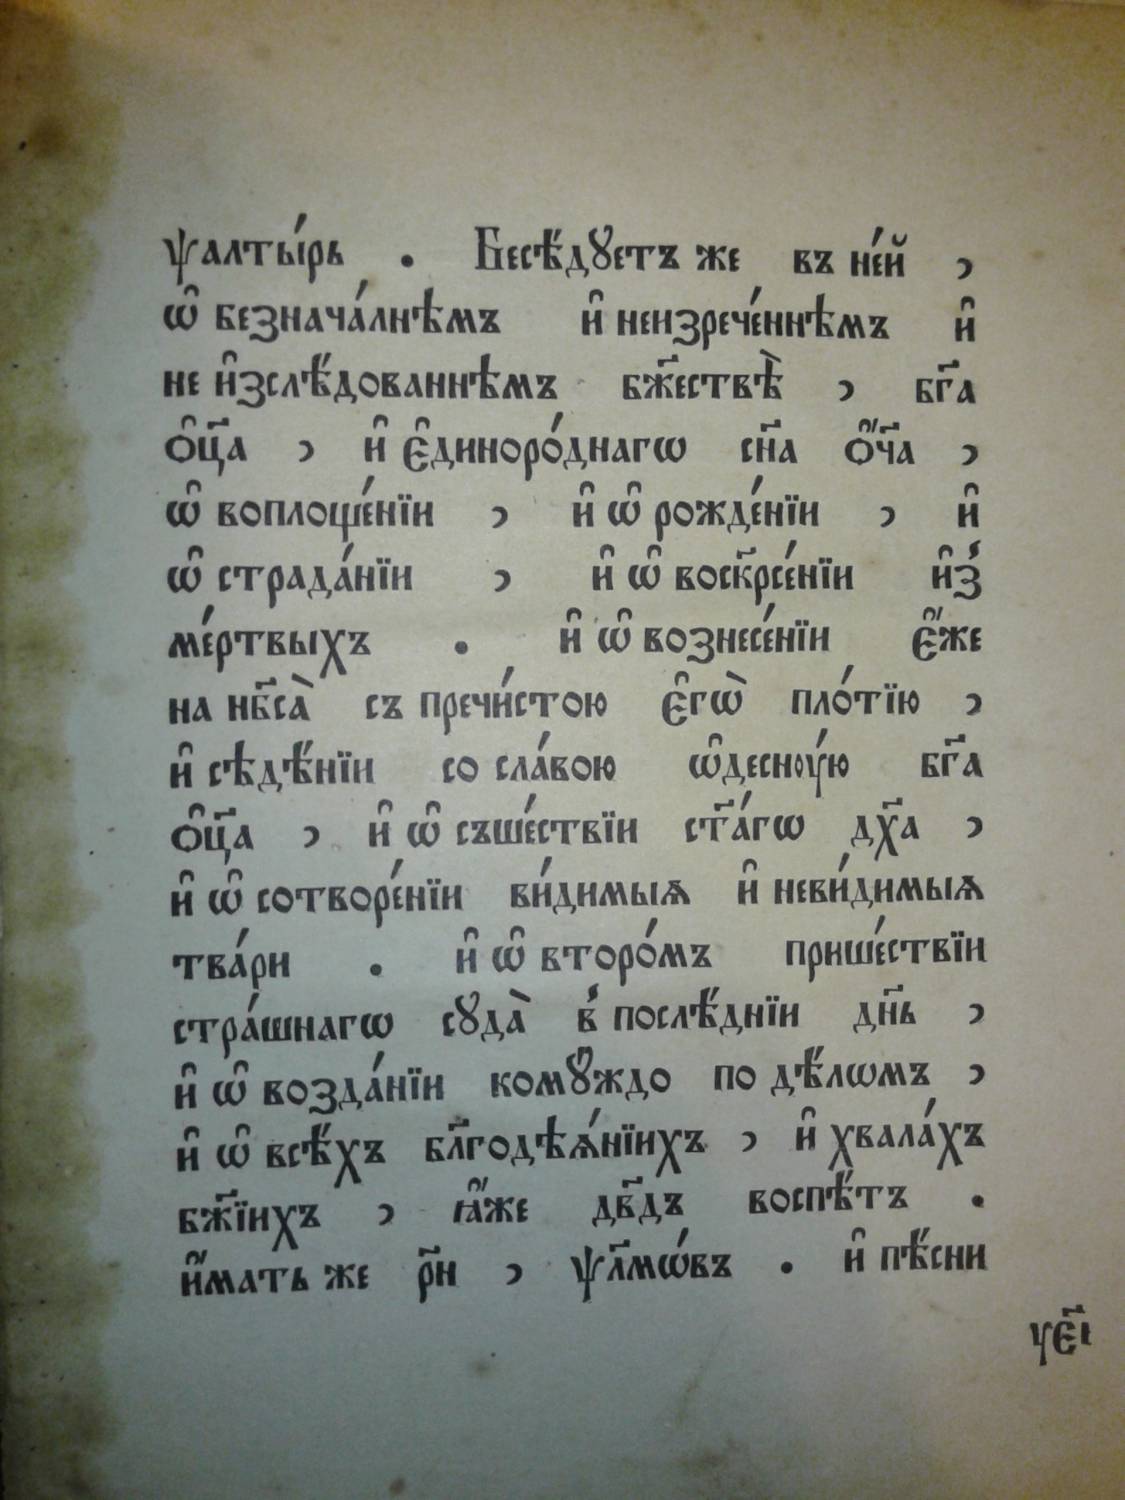 ѱалты́рь . Бесѣ́дꙋетъ же въ не́й ,
ѡ҆ безнача́лнѣмъ и҆ неизрече́ннѣмъ и҆
не и҆зслѣ́дованнѣмъ бж҃ествѣ̀ , бг҃а
о҆ц҃а , и҆ є҆диноро́днагѡ сн҃а о҆́ч҃а ,
ѡ҆ воплоще́нїи , и҆ ѡ҆ рожде́нїи , и҆
ѡ҆ страда́нїи , и҆ ѡ҆ воск҃рсе́нїи и҆з̾
ме́ртвыхъ . и҆ ѡ҆ вознесе́нїи є҆́же
на нб҃са̀ съ пречи́стою є҆гѡ̀ пло́тїю ,
и҆ сѣдѣ́нїи со сла́вою ѡ҆десну́ю бг҃а
о҆ц҃а , и҆ ѡ҆ съше́ствїи ст҃а́гѡ дх҃а ,
и҆ ѡ҆ сотворе́нїи ви́димыѧ и҆ неви́димыѧ
тва́ри . и҆ ѡ҆ второ́мъ прише́ствїи
стра́шнагѡ сꙋда̀ в̾ послѣ́днїи дн҃ь ,
и҆ ѡ҆ возда́нїи комꙋ́ждо по дѣ́лѡмъ ,
и҆ ѡ҆ всѣ́хъ бл҃годѣѧ́нїихъ , и҆ хвала́хъ
бж҃їихъ , ꙗ҆́же дв҃дъ воспѣ́тъ .
и҆́мать же рн҃ , ѱл҃мѡ́въ . и҆ пѣ́сни
ꙋє҃і